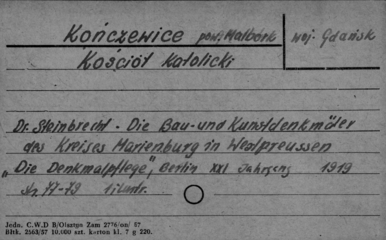 Kończewice pow. Malbork woj. Gdańsk
Kościół Katolicki
Dr. Steinbrecht - Die Bau- und Kunstdenkmäler
des Kreises Marienburg in Westpreussen
"Die Denkmalpflege", Berlin XXI Jahrgang 1919
77-79
Jedn. C.W.D B/Olsztyn Zam 2776/on/ 67
Bltk. 2563/57 10.000 szt. karton kl. 7 g 220.